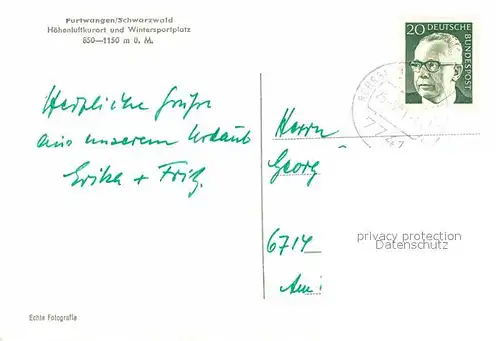 Furtwangen/Schwarzwald
Höhenluftkurort und Wintersportplatz
850—1150 m ü. M.
20 DEUTSCHE
BUNDESPOST
Herzliche Grüße
aus unserem Urlaub
Erika + Fritz.
Herrn
Georg
6714
Am
privacy protection
Datenschutz
Echte Fotografie